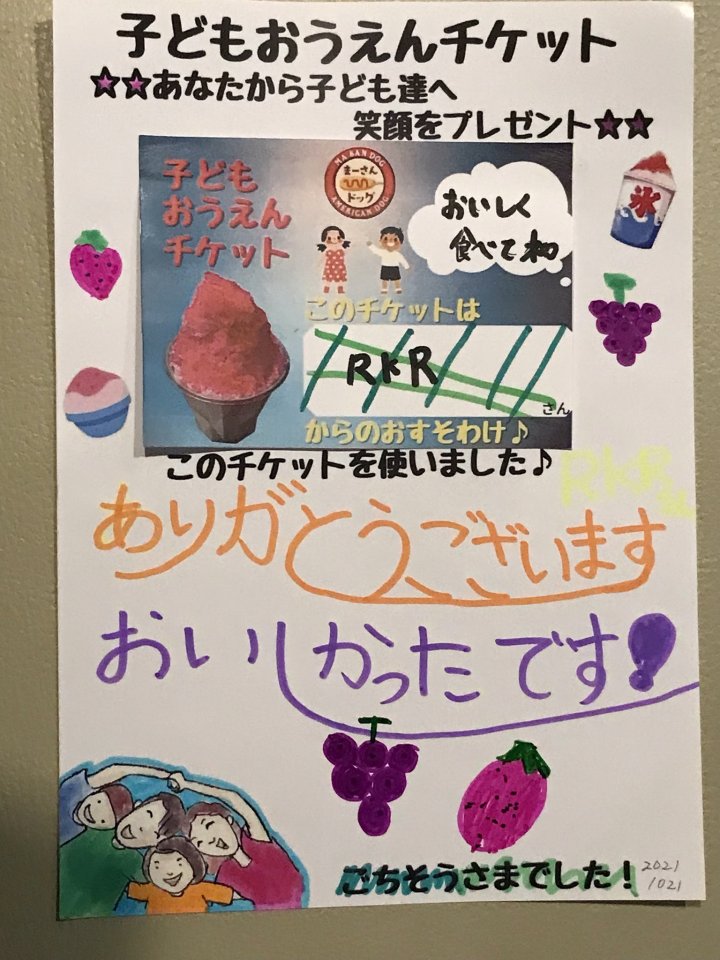 子どもおうえんチケット
☆☆あなたから子ども達へ
笑顔をプレゼント☆☆
子ども
おうえん
チケット
MA-SAN DOG
まーさん
ドッグ
AMERICAN DOG
おいしく
食べてネ
氷
このチケットは
RKR
さん
からのおすそわけ♪
このチケットを使いました♪
RKR
ありがとうございます
おいしかったです!
ごちそうさまでした!
2021
1021